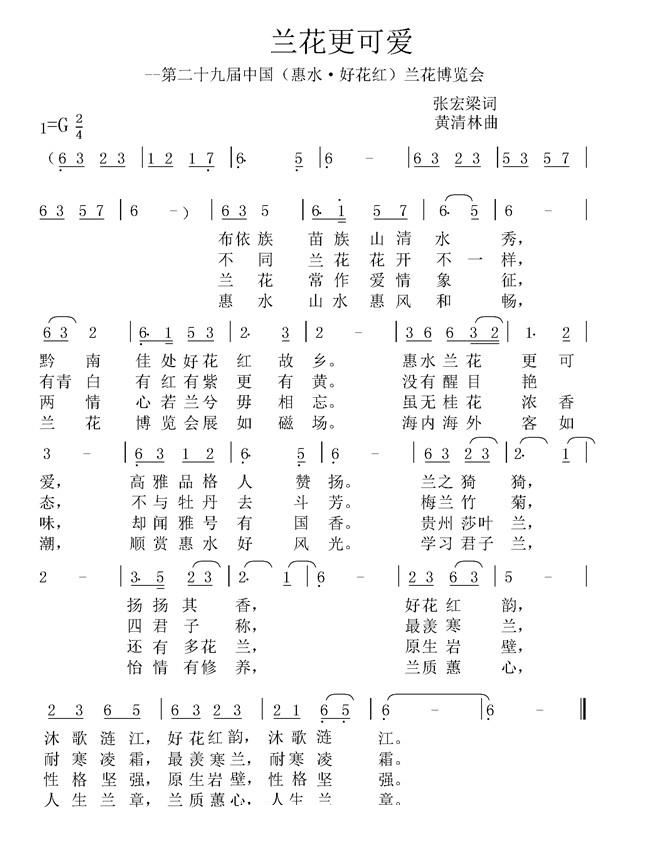 兰花更可爱
--第二十九届中国（惠水·好花红）兰花博览会
张宏梁词
1=G 2/4
黄清林曲
（6 3 2 3 | 1 2 1 7 | 6· 5 | 6 － | 6 3 2 3 | 5 3 5 7 |
6 3 5 7 | 6 －） | 6 3 5 | 6· 1 5 7 | 6· 5 | 6 － |
布依族 苗族山清水 秀，
不 同 兰花花开不一样，
兰 花 常作爱情象 征，
惠 水 山水惠风和 畅，
6 3 2 | 6· 1 5 3 | 2· 3 | 2 － | 3 6 6 3 2 | 1· 2 |
黔 南 佳处好花红 故 乡。 惠水兰花 更 可
有青白 有红有紫更 有 黄。 没有醒目 艳
两 情 心若兰兮毋 相 忘。 虽无桂花 浓 香
兰 花 博览会展如 磁 场。 海内海外 客 如
3 － | 6 3 1 2 | 6· 5 | 6 － | 6 3 2 3 | 2· 1 |
爱， 高雅品格人 赞 扬。 兰之猗 猗，
态， 不与牡丹去 斗 芳。 梅兰竹 菊，
味， 却闻雅号有 国 香。 贵州莎叶 兰，
潮， 顺赏惠水好 风 光。 学习君子 兰，
2 － | 3· 5 2 3 | 2· 1 | 6 － | 2 3 6 3 | 5 － |
扬扬其 香， 好花红 韵，
四君子 称， 最羡寒 兰，
还有多花 兰， 原生岩 壁，
怡情有修 养， 兰质蕙 心，
2 3 6 5 | 6 3 2 3 | 2 1 6 5 | 6 － | 6 － ‖
沐歌涟江，好花红韵，沐歌涟 江。
耐寒凌霜，最羡寒兰，耐寒凌 霜。
性格坚强，原生岩壁，性格坚 强。
人生兰章，兰质蕙心，人生兰 章。